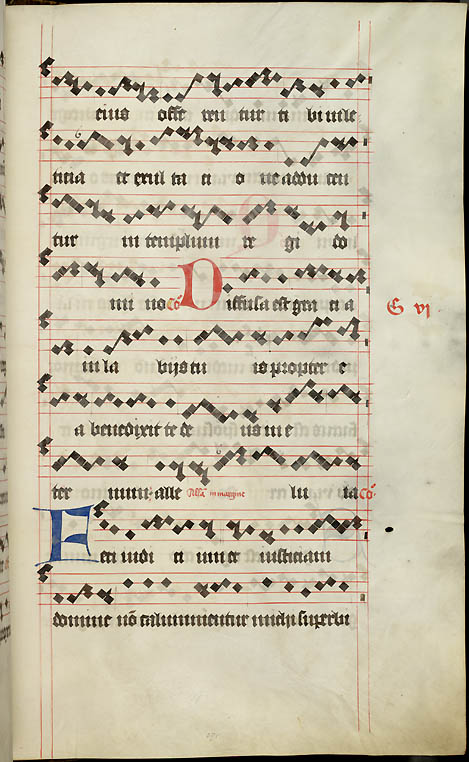 eius offe ren tur ti bi in le
ticia et exul ta ti o ne addu cen
tur in templum re gi do
mi no Co D iffusa est gra ti a
in la bijs tu is propter e
a benedixit te de us in e
ter num alle lu ia Co
F eci iudi ci um et iusticiam
G vi
domine nō calumnientur michi superbi